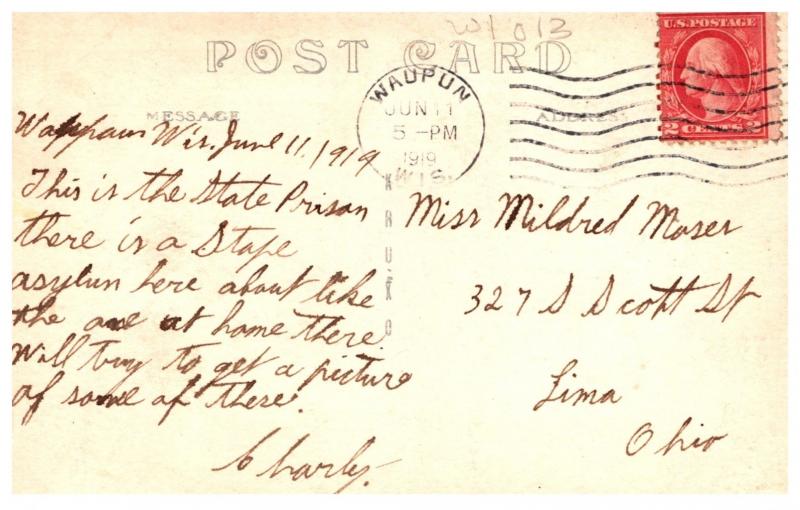 W1013
POST CARD
U.S. POSTAGE
2 CENTS 2
WAUPUN
JUN 11
5 -PM
1919
WIS.
MESSAGE
ADDRESS
KRUXO
Waupaun Wis. June 11, 1919
This is the State Prison
there is a State
asylun here about like
the one at home there
Will try to get a picture
of some of these.
Charly.
Miss Mildred Moser
327 S Scott St
Lima
Ohio